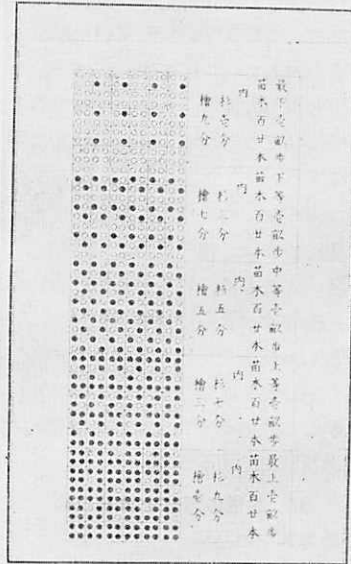 最下壱畝歩
苗木百廿本
内
杉壱分
檜九分
下等壱畝歩
苗木百廿本
内
杉三分
檜七分
中等壱畝歩
苗木百廿本
内
杉五分
檜五分
上等壱畝歩
苗木百廿本
内
杉七分
檜三分
最上壱畝歩
苗木百廿本
内
杉九分
檜壱分